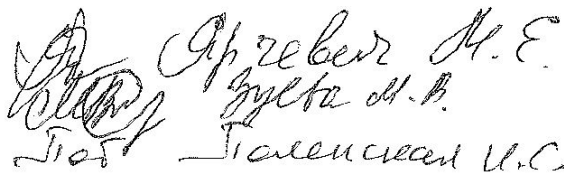 Ярчевич М. Е.
Зуева М. В.
Поленская И. С.